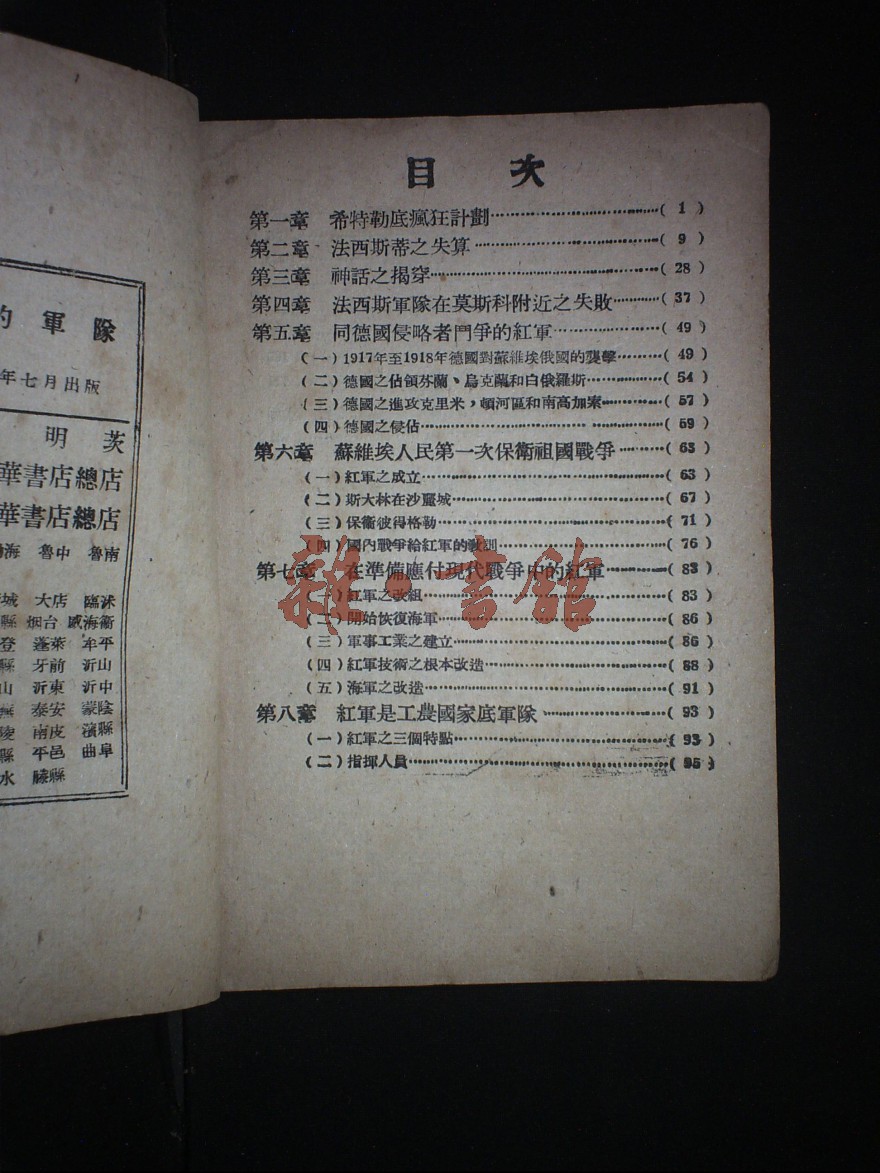 的軍隊
年七月出版
明茨
華書店總店
華書店總店
海 魯中 魯南
城 大店 臨沭
縣 烟台 威海衞
登 蓬萊 牟平
縣 牙前 沂山
山 沂東 沂中
泰安 蒙陰
陵 南皮 濱縣
縣 平邑 曲阜
水 滕縣
目次
第一章 希特勒底瘋狂計劃……………(1)
第二章 法西斯蒂之失算……………(9)
第三章 神話之揭穿……………(28)
第四章 法西斯軍隊在莫斯科附近之失敗………(37)
第五章 同德國侵略者鬥爭的紅軍…………(49)
(一)1917年至1918年德國對蘇維埃俄國的襲擊………(49)
(二)德國之佔領芬蘭、烏克蘭和白俄羅斯…………(54)
(三)德國之進攻克里米,頓河區和南高加索…………(57)
(四)德國之侵佔……………(59)
第六章 蘇維埃人民第一次保衛祖國戰爭………(63)
(一)紅軍之成立……………(63)
(二)斯大林在沙麗城……………(67)
(三)保衛彼得格勒……………(71)
(四)國內戰爭給紅軍的教訓……………(76)
第七章 在準備應付現代戰爭中的紅軍…………(83)
(一)紅軍之改組……………(83)
(二)開始恢復海軍……………(86)
(三)軍事工業之建立……………(86)
(四)紅軍技術之根本改造……………(88)
(五)海軍之改造……………(91)
第八章 紅軍是工農國家底軍隊……………(93)
(一)紅軍之三個特點……………(93)
(二)指揮人員……………(95)
雜·書館